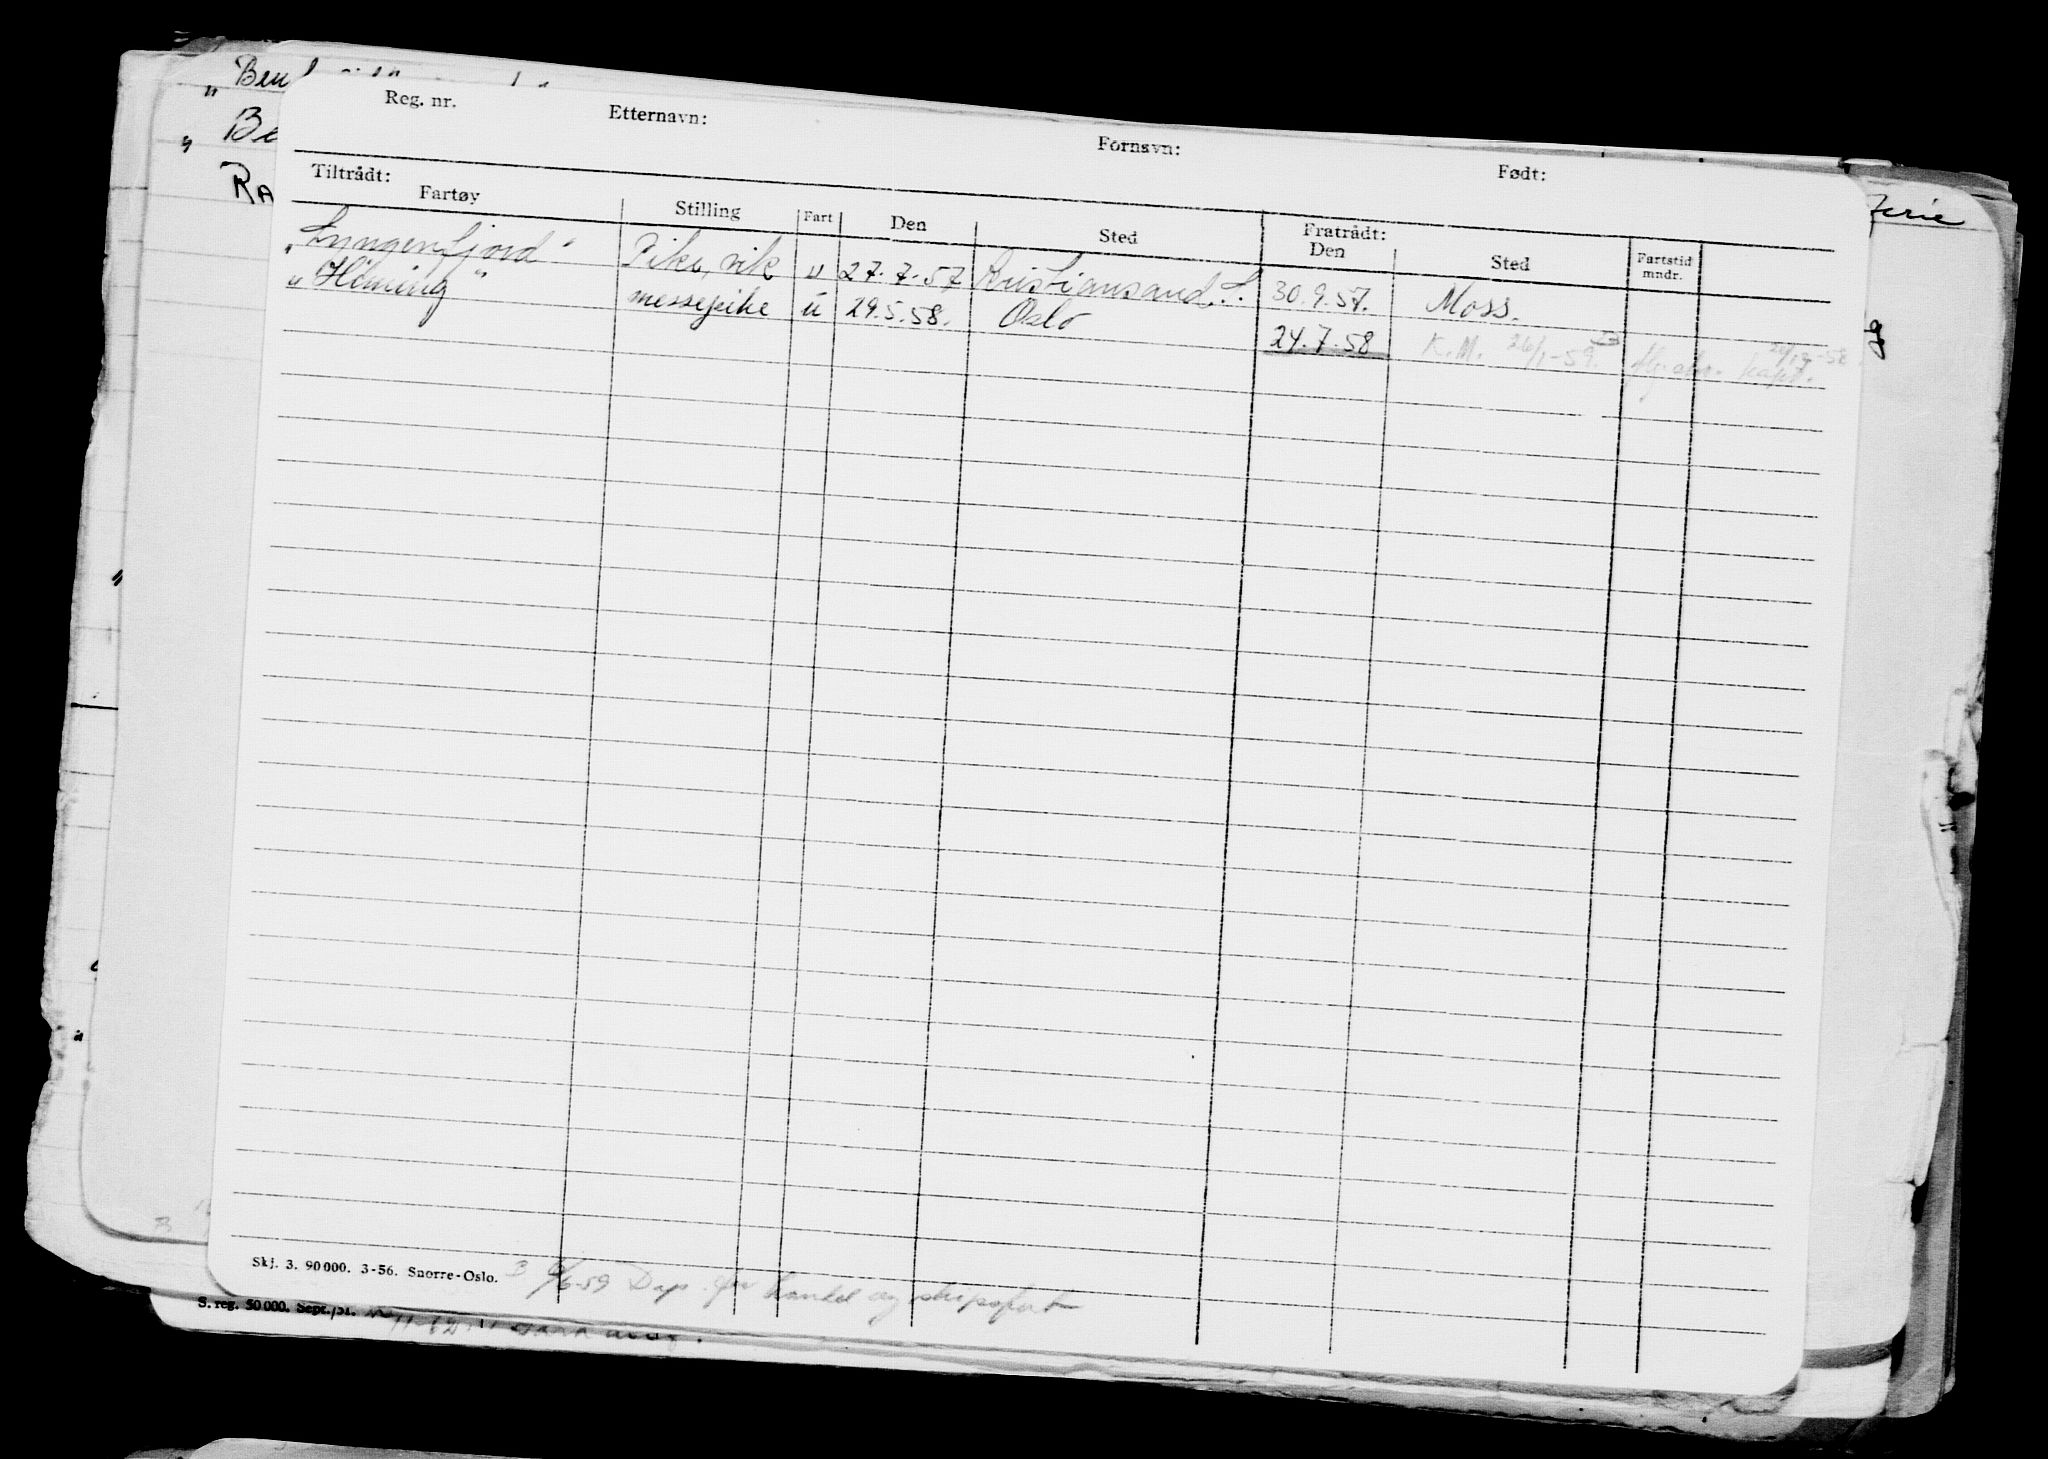 Reg. nr. Etternavn: Fornavn: Født:
Tiltrådt: Fratrådt:
Fartøy Stilling Fart Den Sted Den Sted Fartstid mndr.
"Lyngenfjord" Pike, vik u 27.7.57 Kristiansand S. 30.9.57. Moss.
"Höming" messepike u 29.5.58. Oslo 24.7.58 K.M. 26/1-59.
Skj. 3. 90 000. 3-56. Snorre-Oslo. 3 6/6-59 Dep. for handel og skipsfart
S. reg. 50 000. Sept./51.
" Be
RA
Ferie